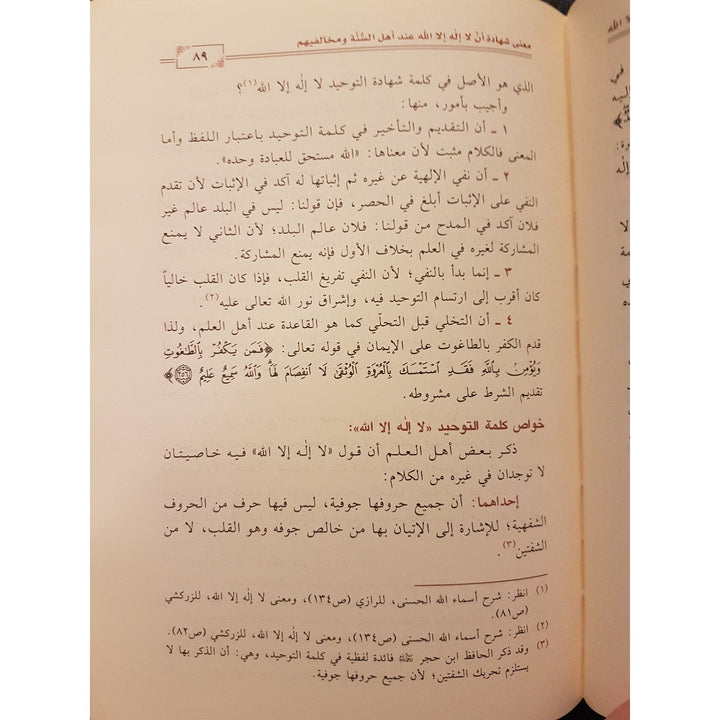 معنى شهادة أن لا إلٰه إلا الله عند أهل السُّنَّة ومخالفيهم
٨٩
الذي هو الأصل في كلمة شهادة التوحيد لا إلٰه إلا الله(١)؟
وأجيب بأمور، منها:
١ ـ أن التقديم والتأخير في كلمة التوحيد باعتبار اللفظ وأما
المعنى فالكلام مثبت لأن معناها: «الله مستحق للعبادة وحده».
٢ ـ أن نفي الإلهية عن غيره ثم إثباتها له آكد في الإثبات لأن تقدم
النفي على الإثبات أبلغ في الحصر، فإن قولنا: ليس في البلد عالم غير
فلان آكد في المدح من قولنا: فلان عالم البلد؛ لأن الثاني لا يمنع
المشاركة لغيره في العلم بخلاف الأول فإنه يمنع المشاركة.
٣ ـ إنما بدأ بالنفي؛ لأن النفي تفريغ القلب، فإذا كان القلب خالياً
كان أقرب إلى ارتسام التوحيد فيه، وإشراق نور الله تعالى عليه(٢).
٤ ـ أن التخلي قبل التحلّي كما هو القاعدة عند أهل العلم، ولذا
قدم الكفر بالطاغوت على الإيمان في قوله تعالى: ﴿فَمَن يَكْفُرْ بِالطَّاغُوتِ
وَيُؤْمِنۢ بِاللَّهِ فَقَدِ اسْتَمْسَكَ بِالْعُرْوَةِ الْوُثْقَىٰ لَا انفِصَامَ لَهَا ۗ وَاللَّهُ سَمِيعٌ عَلِيمٌ ۝٢٥٦﴾
تقديم الشرط على مشروطه.
خواص كلمة التوحيد «لا إلٰه إلا الله»:
ذكر بعض أهل العلم أن قول «لا إلٰه إلا الله» فيه خاصيتان
لا توجدان في غيره من الكلام:
إحداهما: أن جميع حروفها جوفية، ليس فيها حرف من الحروف
الشفهية؛ للإشارة إلى الإتيان بها من خالص جوفه وهو القلب، لا من
الشفتين(٣).
(١) انظر: شرح أسماء الله الحسنى، للرازي (ص١٣٤)، ومعنى لا إلٰه إلا الله، للزركشي
(ص٨١).
(٢) انظر: شرح أسماء الله الحسنى (ص١٣٤)، ومعنى لا إلٰه إلا الله، للزركشي (ص٨٢).
(٣) وقد ذكر الحافظ ابن حجر رحمه الله فائدة لفظية في كلمة التوحيد، وهي: أن الذكر بها لا
يستلزم تحريك الشفتين؛ لأن جميع حروفها جوفية.